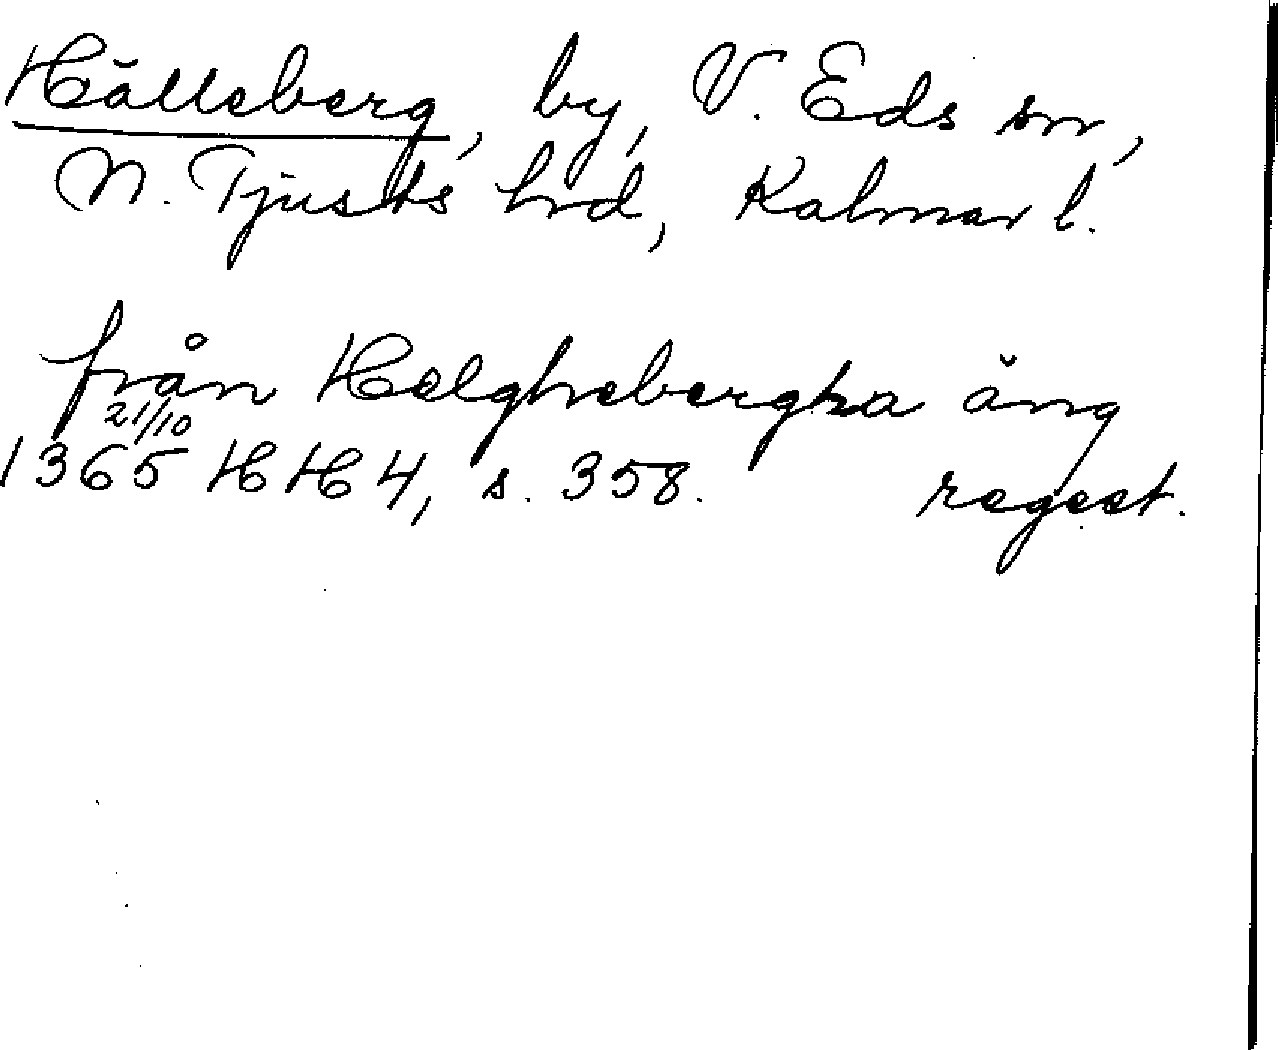 Hälleberg, by, V. Eds sn,
N. Tjusts hrd, Kalmar l.
från Helghebergha äng
21/10
1365 HH 4, s. 358. regest.